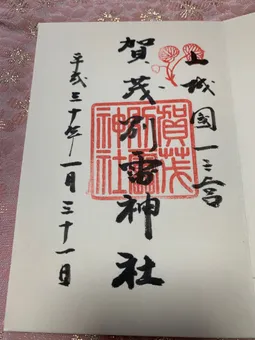 山城國一之宮
賀茂別雷神社
平成三十年一月三十一日
賀茂
別雷
神社